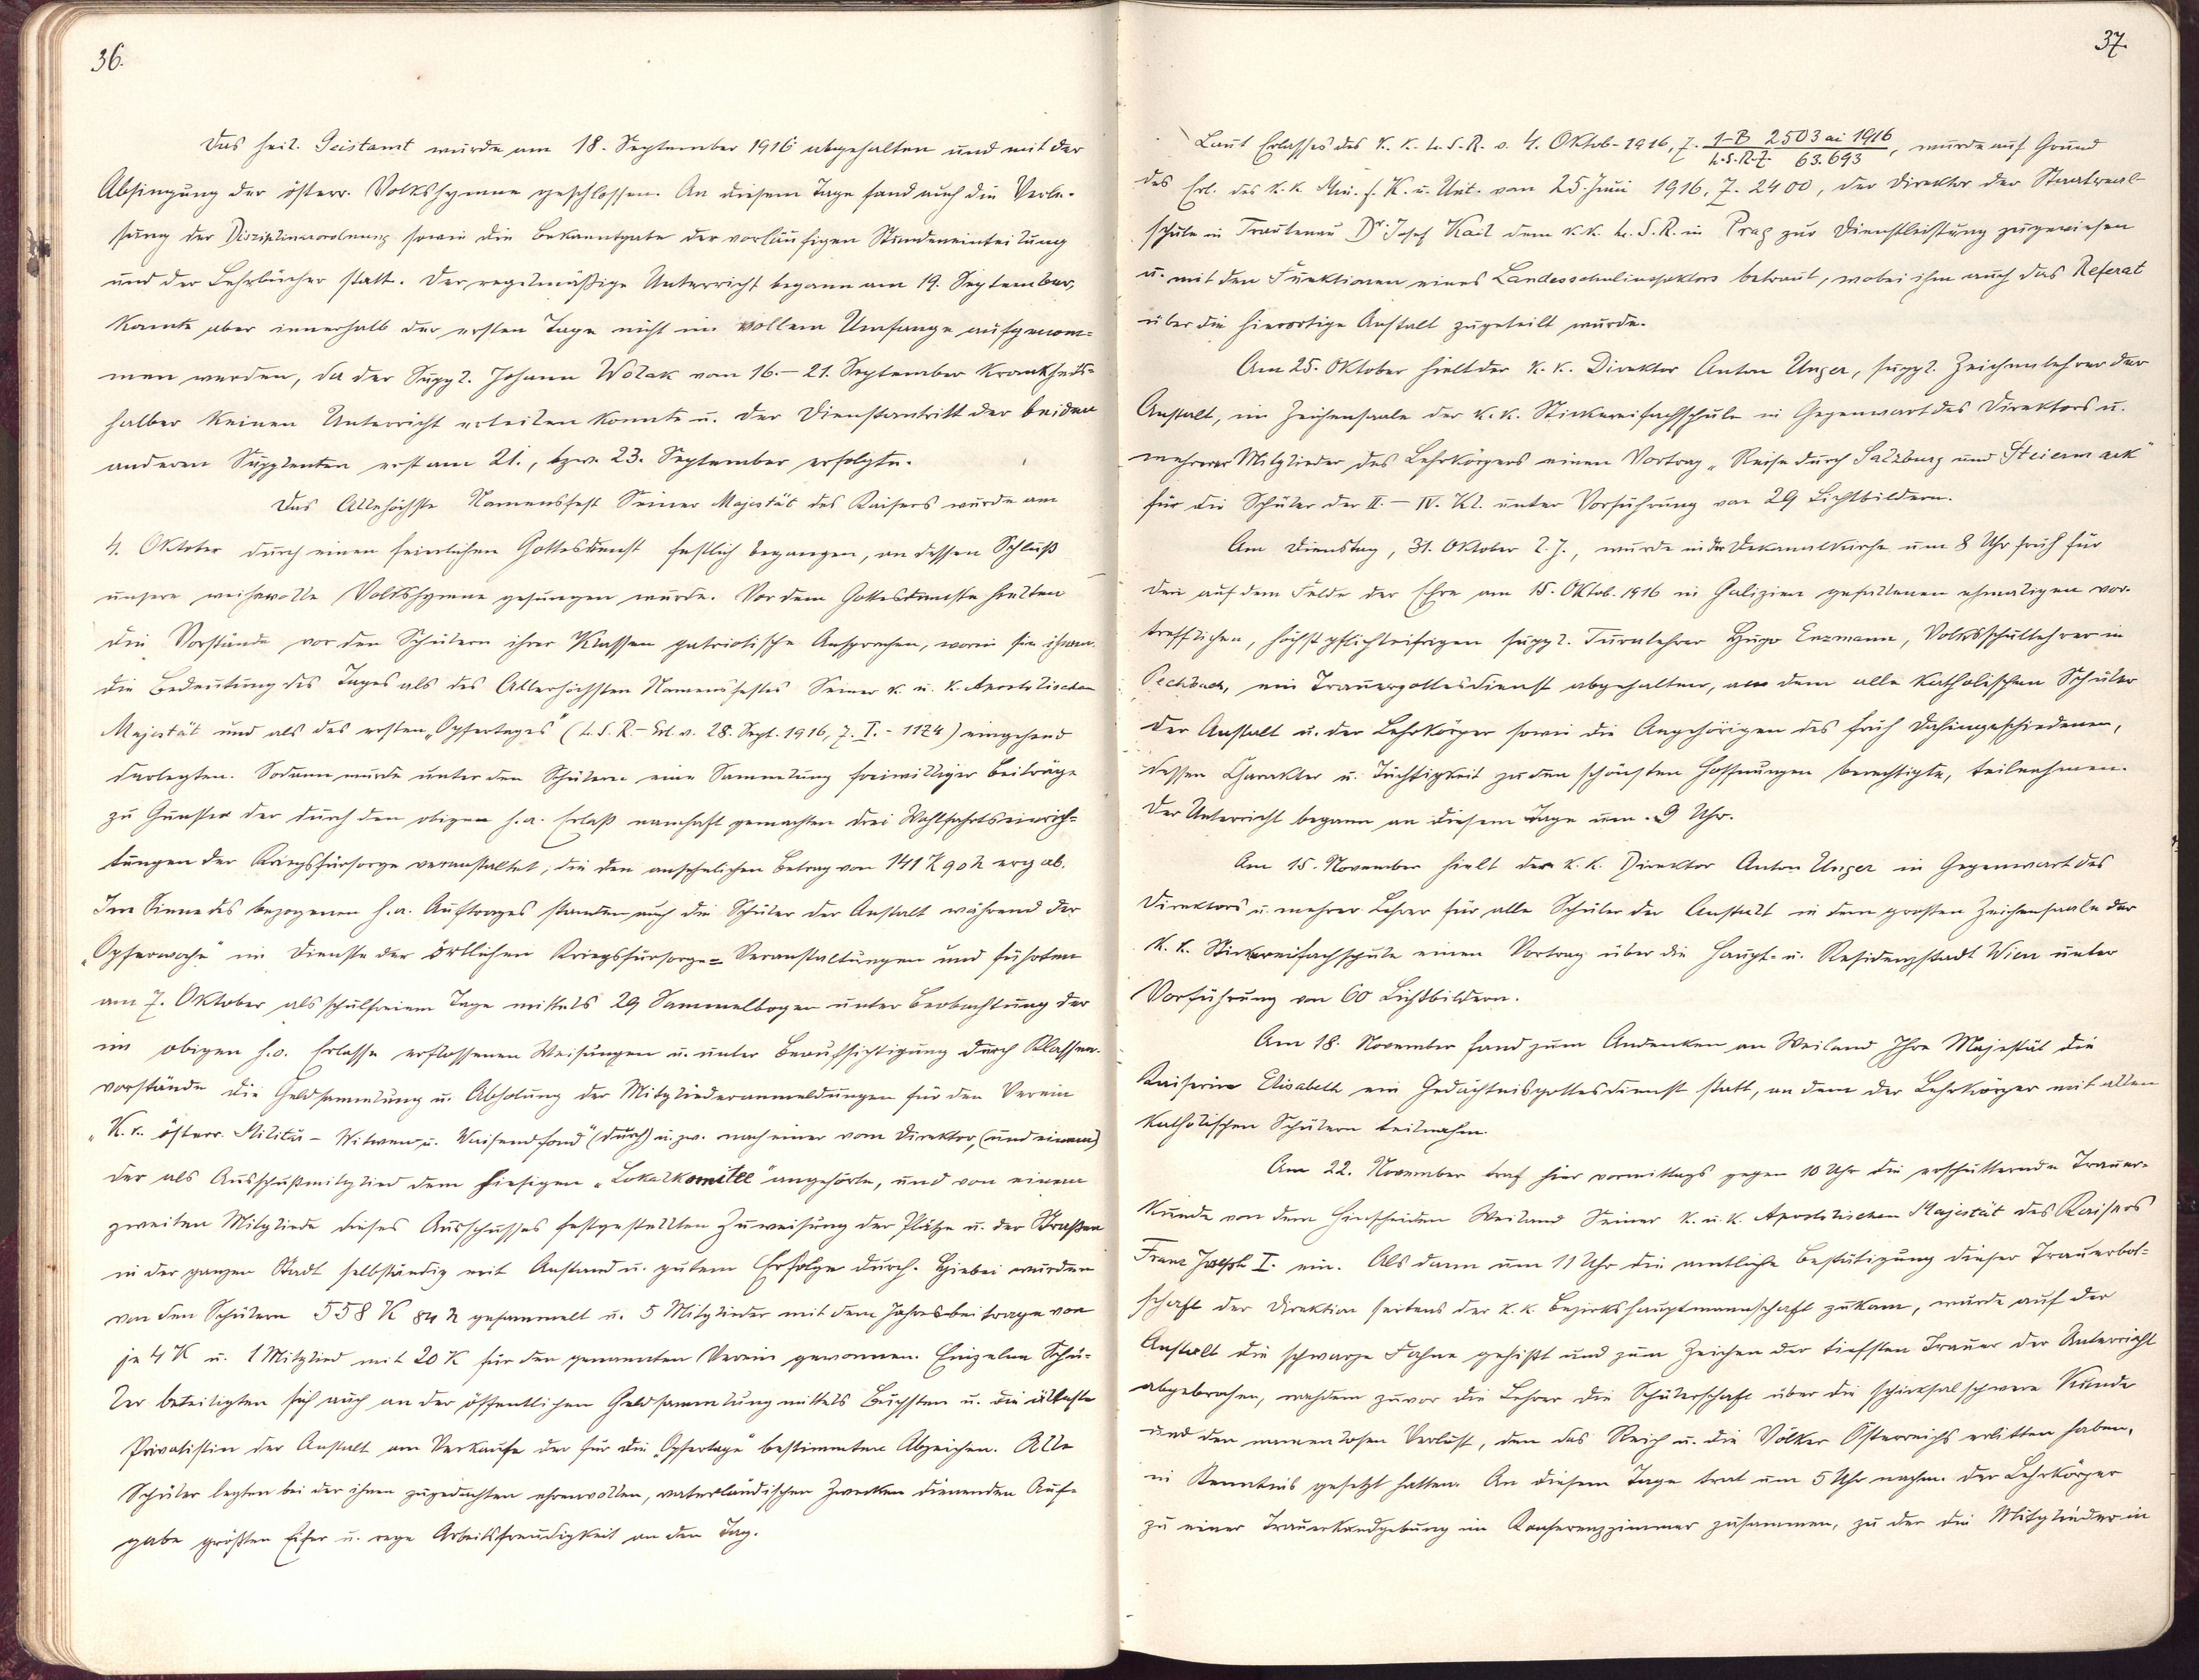 36.
Das heil. Geistamt wurde am 18. September 1916 abgehalten und mit der
Absingung der österr. Volkshymne geschlossen. An diesem Tage fand auch die Verle-
sung der Disziplinarordnung sowie die Bekanntgabe der vorläufigen Stundeneinteilung
und der Lehrbücher statt. Der regelmäßige Unterricht begann am 19. September,
konnte aber innerhalb der ersten Tage nicht im vollem Umfange aufgenom-
men werden, da der Suppl. Johann Wolak vom 16.–21. September krankheits-
halber keinen Unterricht erteilen konnte u. der Dienstantritt der beiden
anderen Supplenten erst am 21., bzw. 23. September erfolgte.
Das Allehöchste Namensfest Seiner Majestät des Kaisers wurde am
4. Oktober durch einen feierlichen Gottesdienst festlich begangen, an dessen Schluß
unsere weihevolle Volkshymne gesungen wurde. Vor dem Gottesdienste hielten
die Vorstände vor den Schülern ihrer Klassen patriotische Ansprachen, worin sie ihnen
die Bedeutung des Tages als des Allerhöchsten Namensfestes Seiner k. u. k. Apostolischen
Majestät und als des ersten „Opfertages" (L. S. R – Erl. v. 28. Sept. 1916, Z. I. - 1124) eingehend
darlegten. Sodann wurde unter den Schülern eine Sammlung freiwilliger Beiträge
zu Gunsten der durch den obigen h. a. Erlaß namhaft gemachten drei Wohlfahrtseinrich-
tungen der Kriegsfürsorge veranstaltet, die den ansehnlichen Betrag von 141 K 90 h ergab.
Im Sinne des bezogenen h. a. Auftrages standen auch die Schüler der Anstalt während der
„Opferwoche" im Dienste der örtlichen Kriegsfürsorge-Veranstaltungen und führten
am 7. Oktober als schulfreiem Tage mittels 29 Sammelbogen unter Beobachtung der
im obigen h. o. Erlasse erflossenen Weisungen u. unter Beaufsichtigung durch Klassen-
vorstände die Geldsammlung u. Abholung der Mitgliederanmeldungen für den Verein
„K. k. österr. Militär – Witwen- u. Waisenfond" (durch) u. zw. nach einer vom Direktor, (und einem)
der als Ausschußmitglied dem hiesigen „Lokalkomitee" angehörte, und von einem
zweiten Mitgliede dieses Ausschusses festgestellten Zuweisung der Plätze u. der Straßen
in der ganzen Stadt selbständig mit Anstand u. gutem Erfolge durch. Hiebei wurden
von den Schülern 558 K 84 h gesammelt u. 5 Mitglieder mit dem Jahresbeitrage von
je 4 K u. 1 Mitglied mit 20 K für den genannten Verein gewonnen. Einzelne Schü-
ler beteiligten sich auch an der öffentlichen Geldsammlung mittels Büchsen u. die älteste
Privatistin der Anstalt am Verkaufe der für die „Opfertage" bestimmten Abzeichen. Alle
Schüler legten bei der ihnen zugedachten ehrenvollen, vaterländischen Zwecken dienenden Auf-
gabe größten Eifer u. rege Arbeitsfreudigkeit an den Tag.
37.
Laut Erlasses des k. k. L. S. R. v. 4. Oktob. 1916, Z. 1-B 2503 ai 1916 / L.S.R.Z. 63.693, wurde auf Grund
des Erl. des k. k. Min. f. K. u. Unt. vom 25. Juni 1916, Z. 2400, der Direktor der Staatsreal-
schule in Trautenau Dr. Josef Kail dem k. k. L. S. R. in Prag zur Dienstleistung zugewiesen
u. mit den Funktionen eines Landesschulinspektors betraut, wobei ihm auch das Referat
über die hierortige Anstalt zugeteilt wurde.
Am 25. Oktober hielt der k. k. Direktor Anton Unger, suppl. Zeichenlehrer der
Anstalt, im Zeichensaale der k. k. Stickereifachschule in Gegenwart des Direktors u.
mehrerer Mitglieder des Lehrkörpers einen Vortrag „Reise durch Salzburg und Steiermark"
für die Schüler der II. – IV. Kl. unter Vorführung von 29 Lichtbildern.
Am Dienstag, 31. Oktober l. J., wurde in der Dekanalkirche um 8 Uhr früh für
den auf dem Felde der Ehre am 15. Oktob. 1916 in Galizien gefallenen ehmaligen vor-
trefflichen, höchst pflichteifrigen suppl. Turnlehrer Hugo Enzmann, Volksschullehrer in
Pechbach, ein Trauergottesdienst abgehalten, an dem alle katholischen Schüler
der Anstalt u. der Lehrkörper sowie die Angehörigen des früh Dahingeschiedenen,
dessen Charakter u. Tüchtigkeit zu den schönsten Hoffnungen berechtigte, teilnahmen.
Der Unterricht begann an diesem Tage um 9 Uhr.
Am 15. November hielt der k. k. Direktor Anton Unger in Gegenwart des
Direktors u. mehrer Lehrer für alle Schüler der Anstalt in dem grossen Zeichensaale der
k. k. Stickereifachschule einen Vortrag über die Haupt- u. Residenzstadt Wien unter
Vorführung von 60 Lichtbildern.
Am 18. November fand zum Andenken an Weiland Ihre Majestät die
Kaiserin Elisabeth ein Gedächtnisgottesdienst statt, an dem der Lehrkörper mit allen
katholischen Schülern teilnahm.
Am 22. November traf hier vormittags gegen 10 Uhr die erschütternde Trauer-
kunde von dem Hinscheiden Weiland Seiner k. u. k. Apostolischen Majestät des Kaisers
Franz Joseph I. ein. Als dann um 11 Uhr die amtliche Bestätigung dieser Trauerbot-
schaft der Direktion seitens der k. k. Bezirkshauptmannschaft zukam, wurde auf der
Anstalt die schwarze Fahne gehißt und zum Zeichen der tiefsten Trauer der Unterricht
abgebrochen, nachdem zuvor die Lehrer die Schülerschaft über die schicksalschwere Kunde
und den namenlosen Verlust, den das Reich u. die Völker Österreichs erlitten haben,
in Kenntnis gesetzt hatten. An diesem Tage trat um 5 Uhr nachm. der Lehrkörper
zu einer Trauerkundgebung im Konferenzzimmer zusammen, zu der die Mitglieder in